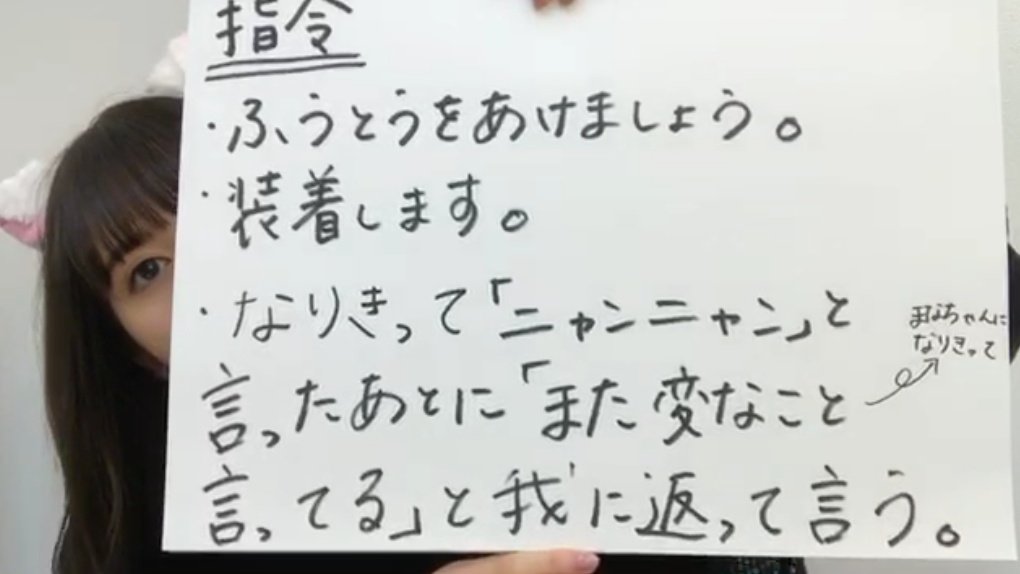 指令
・ふうとうをあけましょう。
・装着します。
・なりきって「ニャンニャン」と
言ったあとに「また変なこと
言ってる」と我に返って言う。
まなちゃんに
なりきって